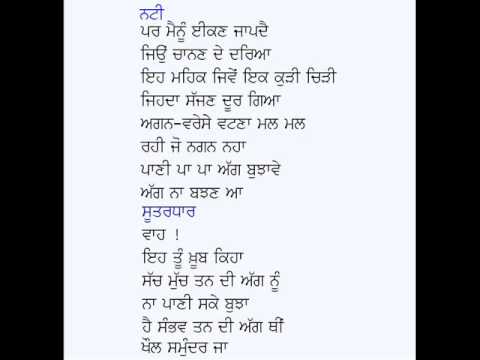 ਨਟੀ
ਪਰ ਮੈਨੂੰ ਈਕਣ ਜਾਪਦੈ
ਜਿਉਂ ਚਾਨਣ ਦੇ ਦਰਿਆ
ਇਹ ਮਹਿਕ ਜਿਵੇਂ ਇਕ ਕੁੜੀ ਚਿੜੀ
ਜਿਹਦਾ ਸੱਜਣ ਦੂਰ ਗਿਆ
ਅਗਨ-ਵਰੇਸੇ ਵਟਣਾ ਮਲ ਮਲ
ਰਹੀ ਜੋ ਨਗਨ ਨਹਾ
ਪਾਣੀ ਪਾ ਪਾ ਅੱਗ ਬੁਝਾਵੇ
ਅੱਗ ਨਾ ਬਝਣ ਆ
ਸੂਤਰਧਾਰ
ਵਾਹ !
ਇਹ ਤੂੰ ਖ਼ੂਬ ਕਿਹਾ
ਸੱਚ ਮੁੱਚ ਤਨ ਦੀ ਅੱਗ ਨੂੰ
ਨਾ ਪਾਣੀ ਸਕੇ ਬੁਝਾ
ਹੈ ਸੰਭਵ ਤਨ ਦੀ ਅੱਗ ਥੀਂ
ਖੌਲ ਸਮੁੰਦਰ ਜਾ